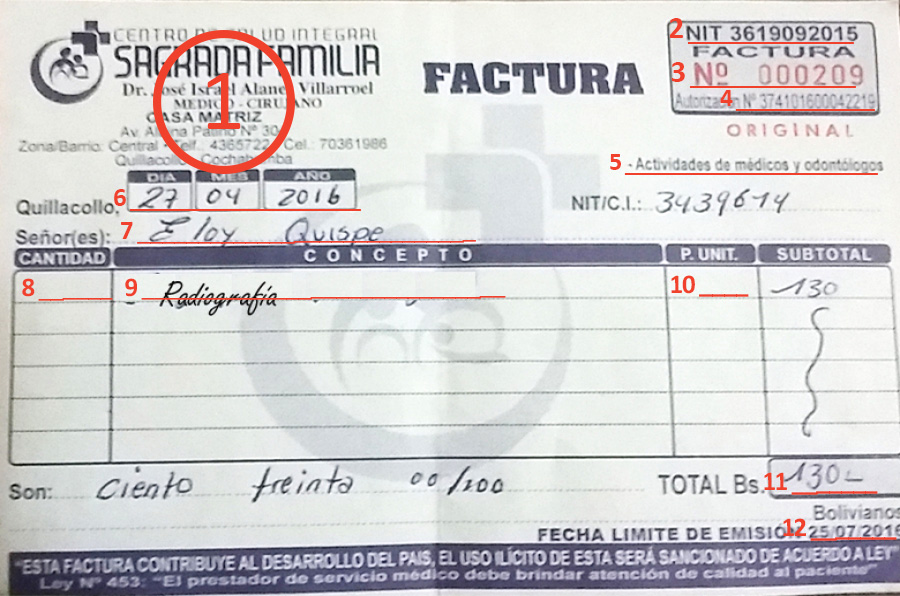 CENTRO DE SALUD INTEGRAL
SAGRADA FAMILIA
Dr. José Israel Alanes Villarroel
MEDICO - CIRUJANO
CASA MATRIZ
Av. Patiño Nº 30
Zona/Barrio: Central - Telf.: 4365722 Cel.: 70361986
Quillacollo - Cochabamba
1
FACTURA
2 NIT 3619092015
FACTURA
3 Nº 000209
4 Autorización Nº 374101600042219
ORIGINAL
5 - Actividades de médicos y odontólogos
DIA MES AÑO
Quillacollo, 6 27 04 2016
NIT/C.I.: 3439614
Señor(es): 7 Eloy Quispe
CANTIDAD CONCEPTO P. UNIT. SUBTOTAL
8 9 Radiografía 10 130
Son: Ciento treinta 00/100 TOTAL Bs. 11 130-
Bolivianos
FECHA LIMITE DE EMISIÓN 12 25/07/2016
"ESTA FACTURA CONTRIBUYE AL DESARROLLO DEL PAIS, EL USO ILÍCITO DE ESTA SERÁ SANCIONADO DE ACUERDO A LEY"
Ley Nº 453: "El prestador de servicio médico debe brindar atención de calidad al paciente"